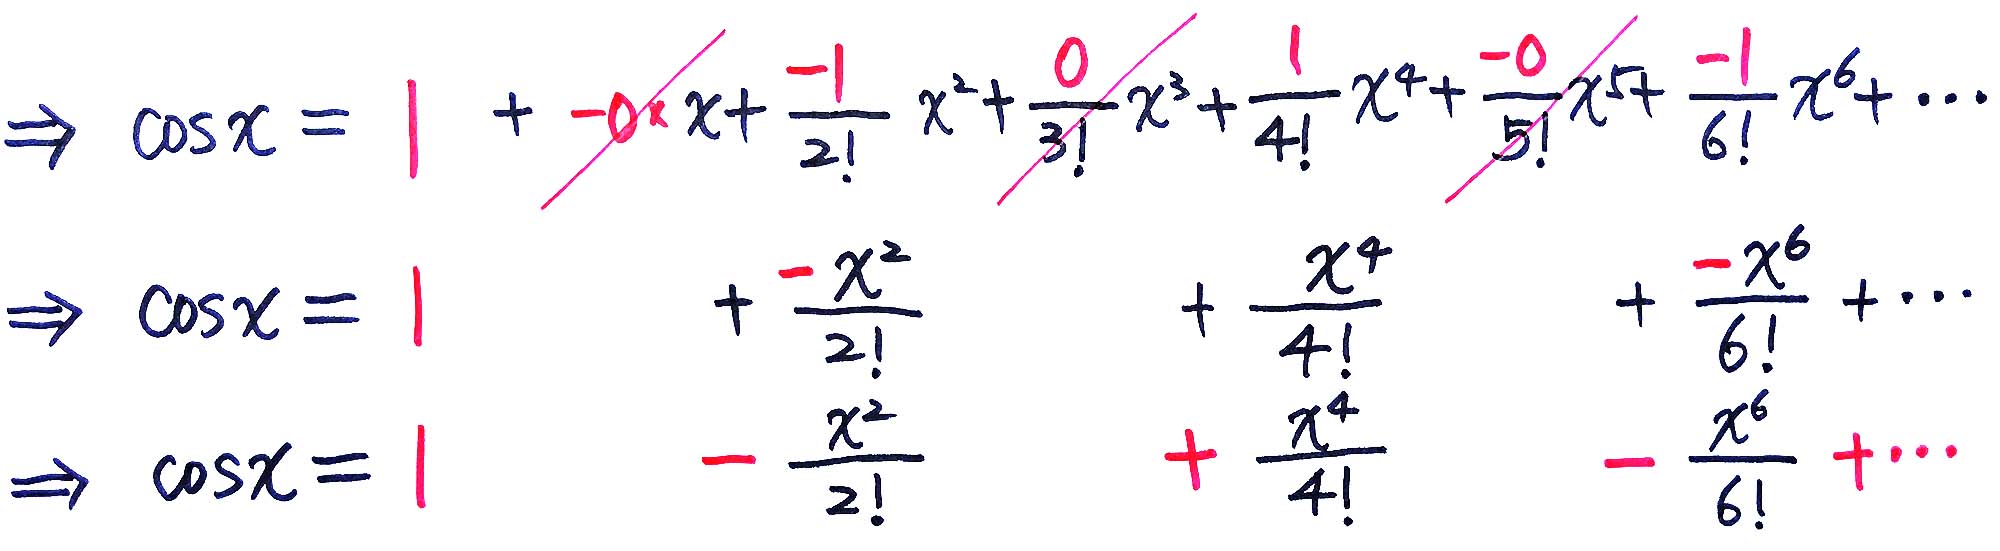 ⇒ cosx = 1 + -0× x + -1/2! x² + 0/3! x³ + 1/4! x⁴ + -0/5! x⁵ + -1/6! x⁶ + ···
⇒ cosx = 1 + -x²/2! + x⁴/4! + -x⁶/6! + ···
⇒ cosx = 1 - x²/2! + x⁴/4! - x⁶/6! + ···